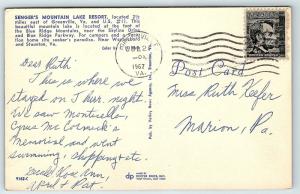 SENGER'S MOUNTAIN LAKE RESORT, located 2½
miles east of Greenville, Va. and U.S. 271. This
beautiful mountain lake is located at the foot of
the Blue Ridge Mountains, near the Skyline Drive
and Blue Ridge Parkway. For campers and a
the home site seeker's paradise. Near Waynesboro
and Staunton, Va.
VA.
1967
Post Card
Dear Ruth:
This is where we
stayed on Thurs. night.
We saw Monticello,
Cyrus McCormick's
Memorial, and went
swimming, shopping etc.
Rose Ann,
Pat.
Miss Ruth Keefer
Marion, Pa.
9162-C
dp